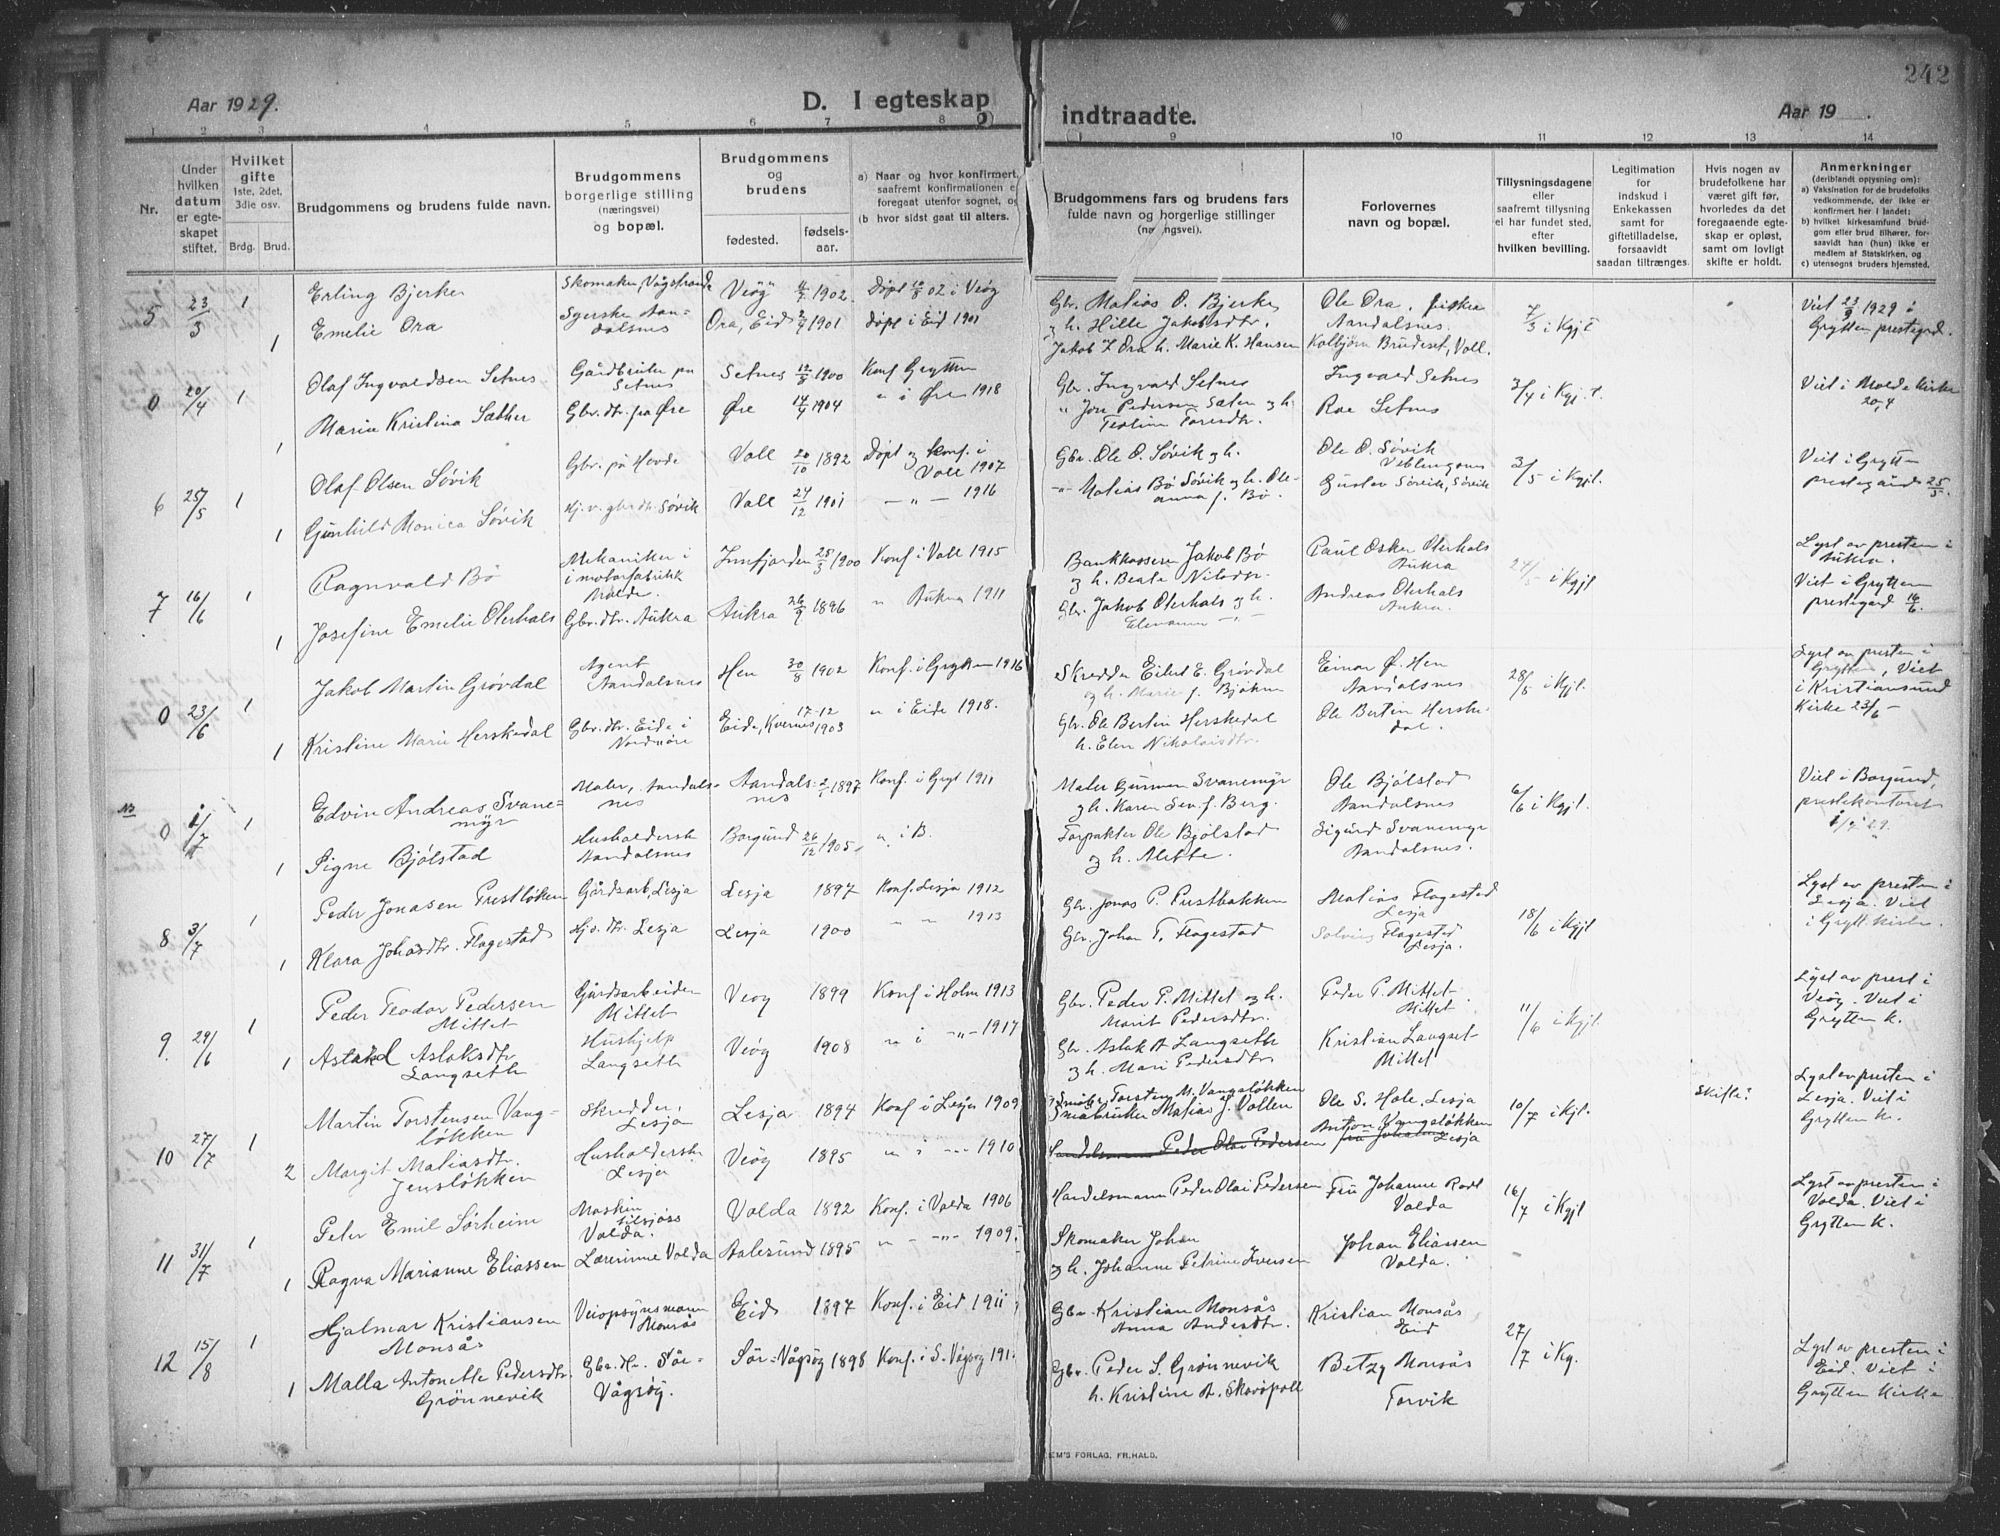 242
Aar 1929. D. I egteskap indtraadte. Aar 19 .
1 2 3 4 5 6 7 8 9 10 11 12 13 14
Nr.
Under hvilken datum er egteskapet stiftet.
Hvilket gifte
1ste, 2det, 3die osv.
Brdg. Brud.
Brudgommens og brudens fulde navn.
Brudgommens
borgerlige stilling
(næringsvei)
og bopæl.
Brudgommens
og
brudens
fødested.
fødsels-
aar.
a) Naar og hvor konfirmert,
saafremt konfirmationen e
foregaat utenfor sognet, og
(b hvor sidst gaat til alters.
Brudgommens fars og brudens fars
fulde navn og horgerlige stillinger
(næringsvei).
Forlovernes
navn og bopæl.
Tillysningsdagene
eller
saafremt tillysning
ei har fundet sted,
efter
hvilken bevilling.
Legitimation
for
indskud i
Enkekassen
samt for
giftetilladelse,
forsaavidt
saadan tiltrænges.
Hvis nogen av
brudefolkene har
været gift før,
hvorledes da det
foregaaende egte-
skap er opløst,
samt om lovligt
skifte er holdt.
Anmerkninger
(deriblandt oplysning om):
a) Vaksination for de brudefolks
vedkommende, der ikke er
konfirmert her i landet;
b) hvilket kirkesamfund brud-
gom eller brud tilhører, for-
saavidt han (hun) ikke er
medlem af Statskirken, og
c) utensogns bruders hjemsted.
5 23/3 1 Erling Bjerke Skomaker, Vågstranda Veöy 1902 Döpt 02 i Veöy
1 Emelie Ora Syerske Aandalsnes Ora, Eid 1901 Döpt i Eid 1901
Gbr. Matias O. Bjerke
og h. Hille Jakobsdtr.
Jakob Z Ora h. Marie K. Hansen
Ole Ora,
Aandalsnes.
Kolbjørn Brudeset, Voll.
7/3 i Kgj.t
Viet 23/3 1929 i
Grytten prestegrd.
0 20/4 1 Olaf Ingvaldsen Setnes Gårdbruker på Setnes Setnes 12/8 1900 Konf Grytten
1 Marie Kristina Sæther Gbr.dtr. på Øre Øre 14/9 1904 " i Øre 1918
Gbr. Ingvald Setnes
" Jon Pedersen Sæter og h.
Ingvald Setnes
Roe Setnes
3/4 i Kgj.t.
Viet i Molde kirke
20/4
6 25/5 1 Olaf Olsen Søvik Gbr. på Hovde Voll 20/10 1892 Döpt og konf. i Voll 1907
1 Gunhild Monica Søvik Hj.v. gbr.dtr. Søvik Voll 24/12 1901 - " - 1916
Gbr. Ole O. Søvik og h.
-"- Matias Bø Søvik og h. Oleanna f. Bø.
Ole O. Søvik
Veblungsnes
Gustav Søvik, Søvik
3/5 i Kgjl.
Viet i Grytten
prestegård 25/5.
7 16/6 1 Ragnvald Bö Mekaniker i
i motorfabrikk
Molde. Innfjorden 28/3 1900 Konf. i Voll 1915
1 Josefine Emelie Oterhals Gbr.dtr. Aukra Aukra 26/9 1896 " Aukra 1911
Bankkasserer Jakob Bø
og h. Beate Nilsdtr.
Gbr. Jakob Oterhals og h.
Paul Oskar Oterhals
Aukra
Andreas Oterhals
Aukra.
i Kgjl
Lyst av presten i
Aukra.
Viet i Grytten
prestegård 16/6.
0 23/6 1 Jakob Martin Grövdal Agent Aandalsnes Hen 30/8 1902 Konf. i Grytten 1916
1 Kristine Marie Herskedal Gbr.dtr. Eide i Nordmöre Eide, Kvernes 17-12 1903 " i Eide 1918.
Skredder Eilert E. Grövdal
og h. Marie f.
Gbr. Ole Bertin Herskedal
h. Elen Nikolaisdtr.
Einar Ø. Hen
Aandalsnes
Ole Bertin Herske-
dal.
28/5 i Kgjl.
Lyst av presten i
Grytten, Viet
i Kristiansund
Kirke 23/6-
0 1/7 1 Edvin Andreas Svane-
myr Maler, Aandals-
nes Aandals-
nes 2/1 1897 Konf. i Gryt 1911
1 Signe Bjölstad Husholdersk
Aandalsnes Borgund 26/12 1905. " i B.
Maler Gunnar Svanemyr
og h. Karen Sev. f. Berg.
Forpakter Ole Bjölstad
og h. Mette.
Ole Bjölstad
Aandalsnes
Sigurd Svanemyr
Aandalsnes.
6/6 i Kgjl.
Viet i Borgund,
prestekontoret
1/7 29.
8 3/7 1 Peder Jonasen Prestlökken Gårdsarb, Lesja Lesja 1897 Konf. Lesja 1912
1 Klara Johansdtr. Flagestad Hjv. dtr. Lesja Lesja 1900 " " 1913
Gbr. Jonas P. Prestbakken
Gbr. Johan T. Flagestad
Matias Flagestad
Lesja
Solveig Flagestad
Lesja.
18/6 i Kgjl
Lyst av presten i
Lesja. Viet
i Grytt. Kirke.
9. 29/6 1 Peder Teodor Pedersen
Mittet Gårdsarbeider
Mittet Veöy 1899 Konf i Holm 1913
1 Aslaksdtr
Langseth Hushjelp
Langseth Veöy 1908 " i -"- 1917
Gbr. Peder P. Mittet og h.
Marit Pedersdtr.
Gbr. Aslak A Langseth
og h. Mari Pedersdtr.
Peder P. Mittet
Mittet
Kristian Langset
Mittet
11/6 i Kgjl.
Lyst av prest i
Veöy. Viet i
Grytten K.
10 27/7 1 Martin Torstensen Vang-
lökken Skredder,
Lesja Lesja 1894 Konf i Lesja 1909
2 Margit Matiasdtr.
Jenslökken Husholdersk
Lesja Veöy 1895 " i -"- 1910
Torsten M. Vangslökken
Småbruker Matias J. Vollen
Handelsmann Peder Olai Pedersen
Ole S. Hole, Lesja
Anton Vangslökken
Lesja
10/7 i Kjl.
Skifte?
Lyst av presten i
Lesja. Viet i
Grytten K.
11 31/7 1 Peter Emil Sörheim Valda. Volda 1892 Konf. i Volda 1906
1 Ragna Marianne Eliassen Lærerinne Volda Aalesund 1895 " - -"- 1909.
Handelsmann Peder Olai Pedersen
Skomaker Johan
og h. Johanne Petrine Iversen
Fru Johanne Rodt
Volda
Johan Eliassen
Volda.
16/7 i Kgjl
Lyst av presten i
Volda. Viet i
Grytten K.
12 15/8 1 Hjalmar Kristiansen
Monsås Veiopsynsmann
Monsås Eid 1897 Konf. i Eid 1911
1 Malla Antonette Pedersdtr.
Grönnevik Gbr. dtr. Sör-
Vågsöy. Sör-Vågsöy 1898 Konf. i S. Vågsöy 191
Gbr. Kristian Monsås
Anna Andersdtr.
Gbr. Peder S. Grönnevik
h. Kristine A. Skavöpoll
Kristian Monsås
Eid
Betzy Monsås
Torvik
27/7 i Kg.
Lyst av presten i
Eid. Viet i
Grytten Kirke
EM'S FORLAG. FR. HALD.